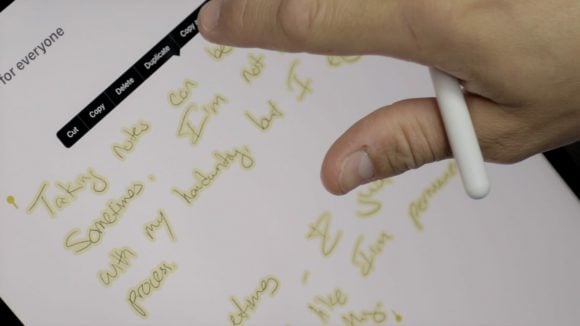 for everyone
Cut Copy Delete Duplicate Copy
Taking notes can be
Sometimes. I'm not
with my handwriting, but I
process.
ething -
like I'm
my.